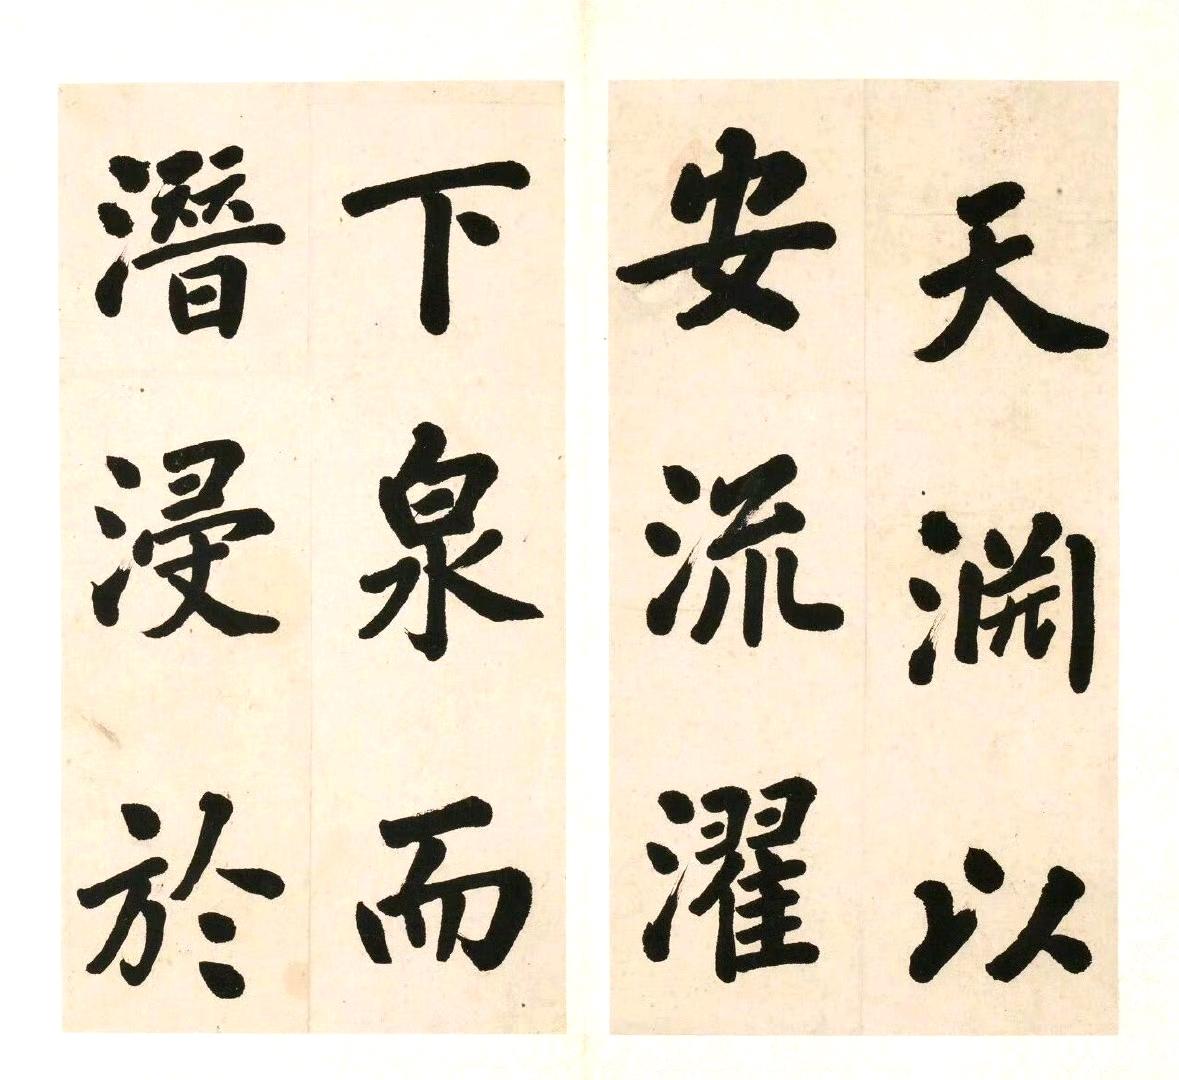 天淵以
安流濯
下泉而
潛浸於